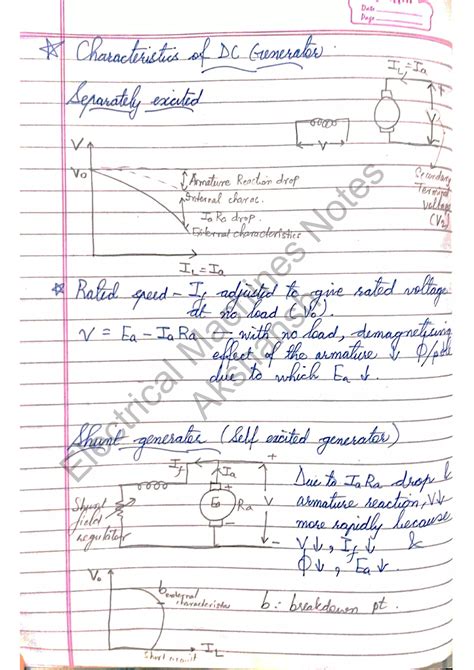 Date
Page
☆ Characteristics of DC Generator
I_L = I_a
Separately excited
V
V
V₀
Armature Reaction drop
Internal charac.
IaRa drop.
External characteristics
Terminal
Voltage
(V₂)
I_L = I_a
V
* Rated speed - I_f adjusted to give rated voltage
at no load (V₀).
V = Ea - IaRa — with no load, demagnetizing
effect of the armature ↓ Φ/pole
due to which Ea ↓.
Shunt generator (Self excited generator)
I_f
Ia
+
Shunt
field
regulator
Ea
Ra
+
-
V
-
Due to IaRa drop &
armature reaction, V↓
more rapidly because
V↓, I_f ↓ &
Φ↓, Ea↓.
V₀
b
external
characteristics
b: breakdown pt.
Short circuit
I_L
Electrical Machines Notes
Akshansh